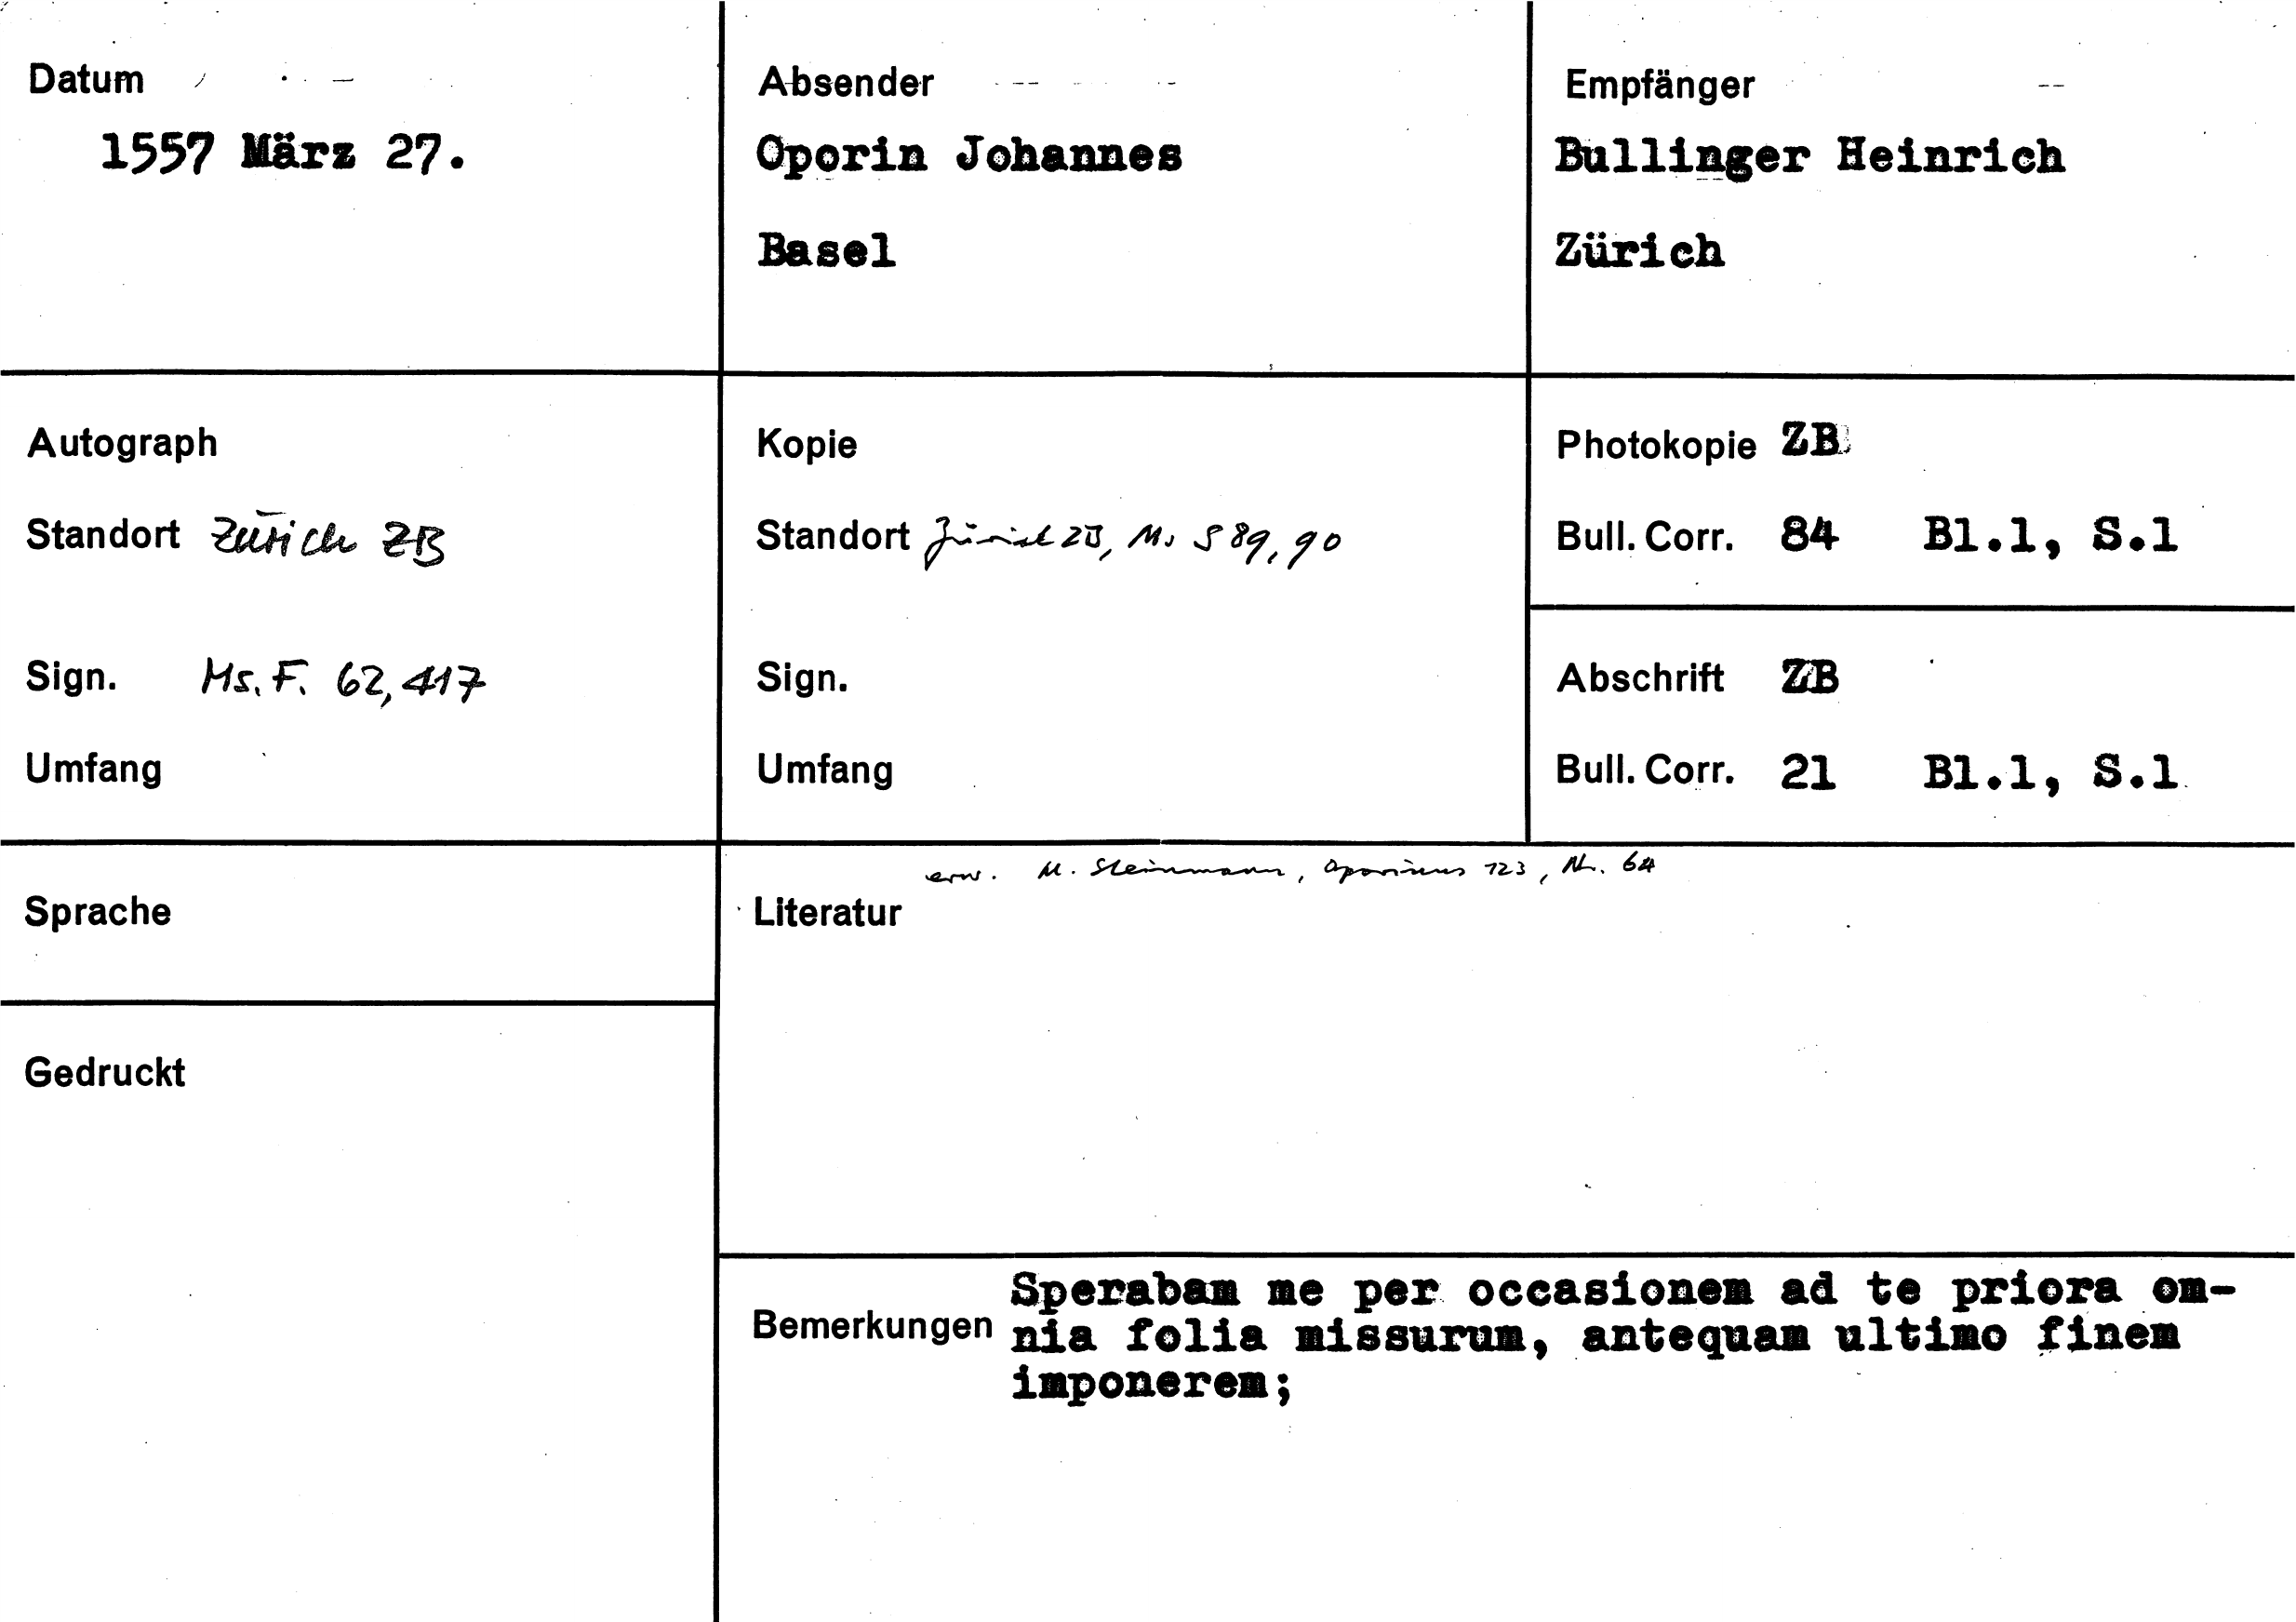 Datum
1557 März 27.
Absender
Oporin Johannes
Basel
Empfänger
Bullinger Heinrich
Zürich
Autograph
Standort Zürich ZB
Sign. Ms. F. 62, 417
Umfang
Kopie
Standort Zürich ZB, Ms S 89, 90
Sign.
Umfang
Photokopie ZB
Bull. Corr. 84 Bl.1, S.1
Abschrift ZB
Bull. Corr. 21 Bl.1, S.1
Sprache
Gedruckt
erw. M. Steinmann, Oporinus 123, Nr. 64
Literatur
Bemerkungen
Sperabam me per occasionem ad te priora om-
nia folia missurum, antequam ultimo finem
imponerem;